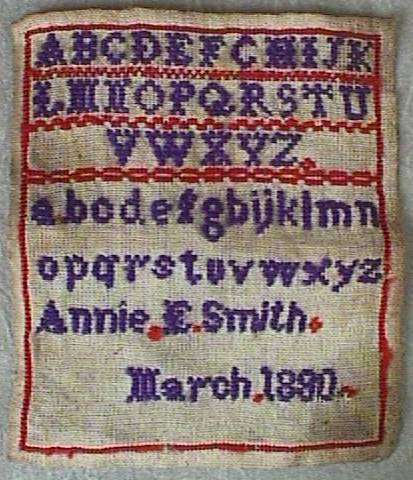 ABCDEFGHIJK
LMNOPQRSTU
VWXYZ.
abcdefghijklmn
opqrstuvwxyz
Annie.E.Smith.
March.1890.